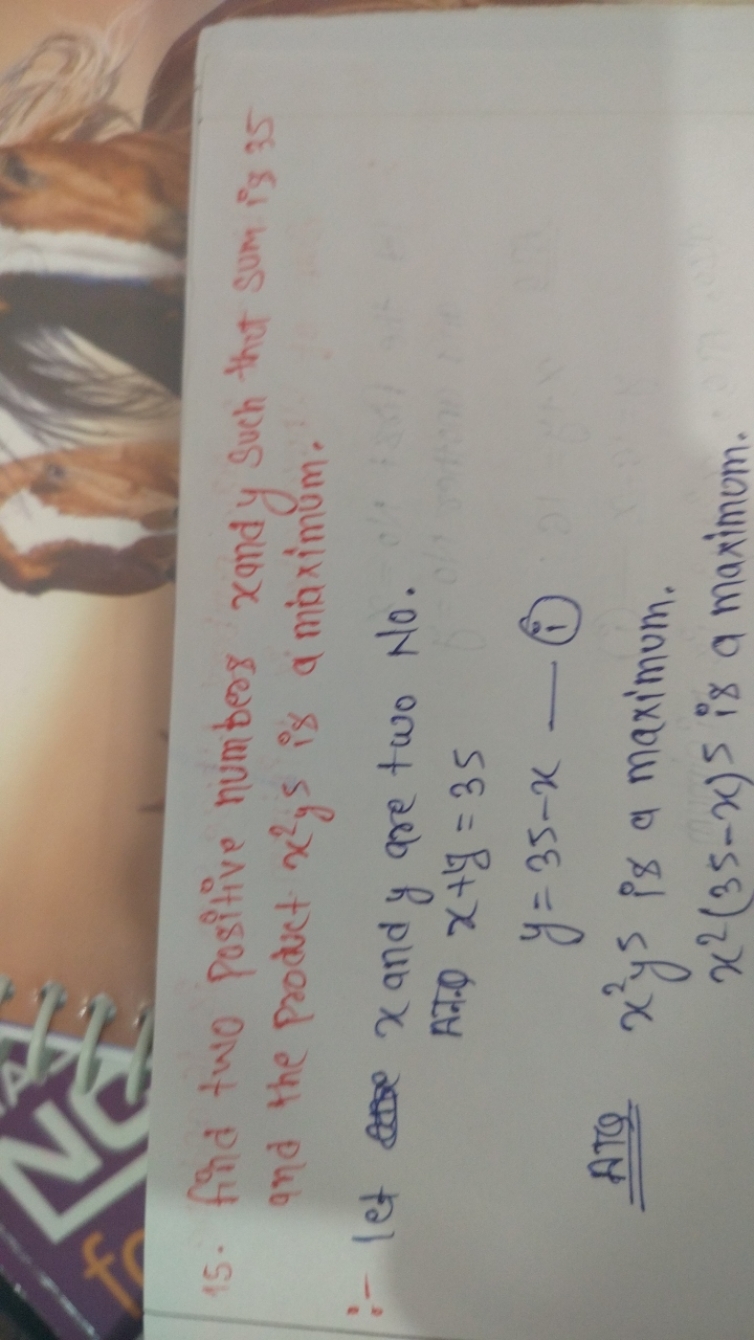 15. find two positive numbers x and y such that sum is 35
and the product x²y⁵ is a maximum.
:- let x and y are two No.
ATQ x+y = 35
y = 35-x — (i)
ATQ x²y⁵ is a maximum.
x²(35-x)⁵ is a maximum.